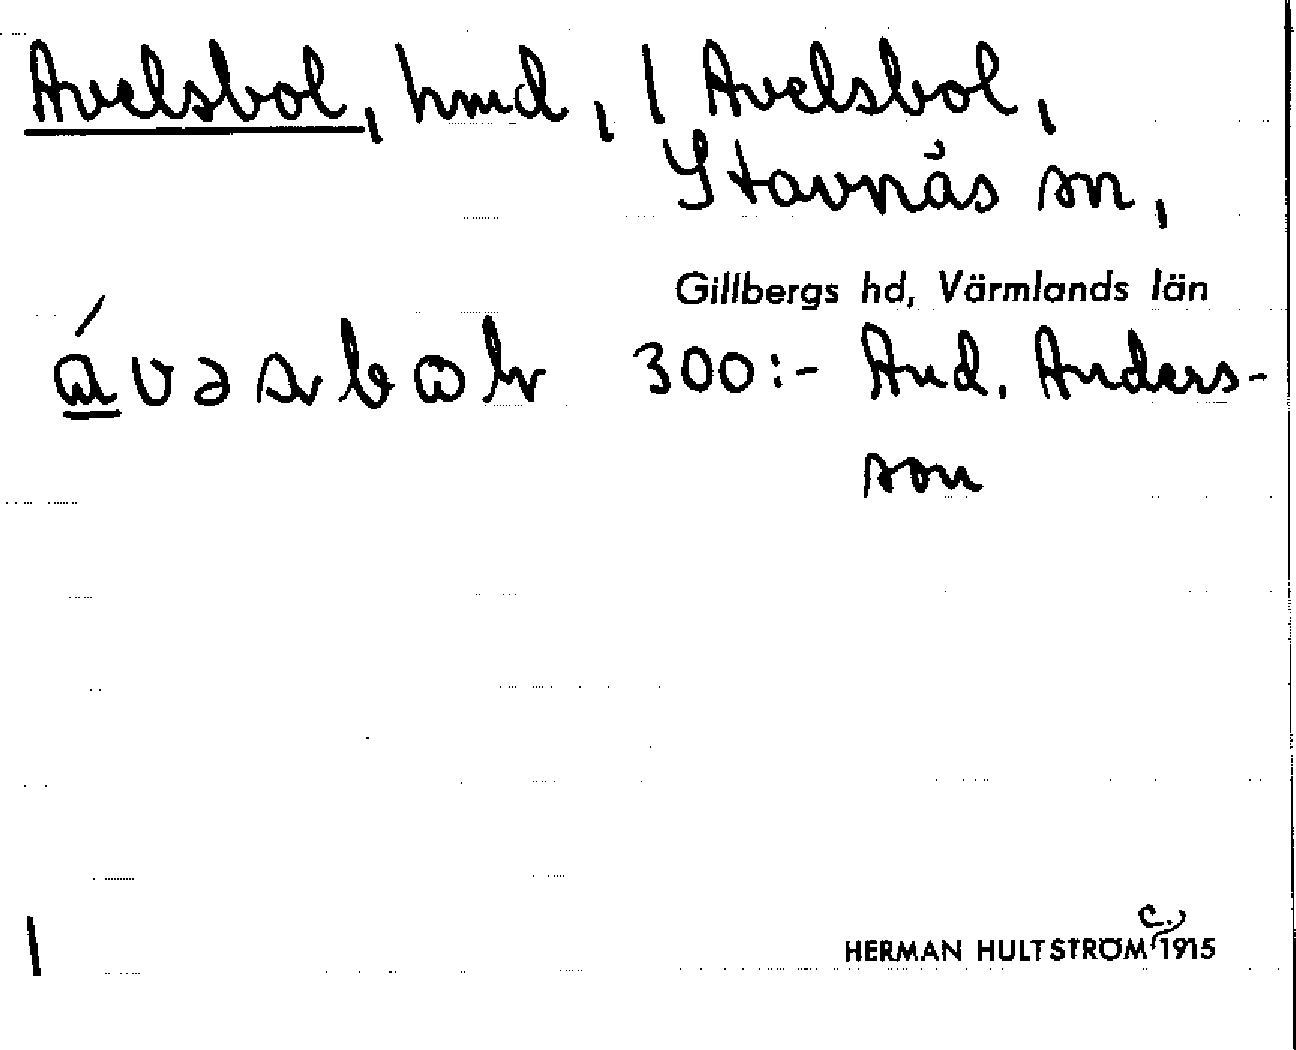 Avelsbol, hmd, / Avelsbol,
Stavnäs sn,
Gillbergs hd, Värmlands län
300:- And. Anders-
son
HERMAN HULTSTRÖM c. 1915